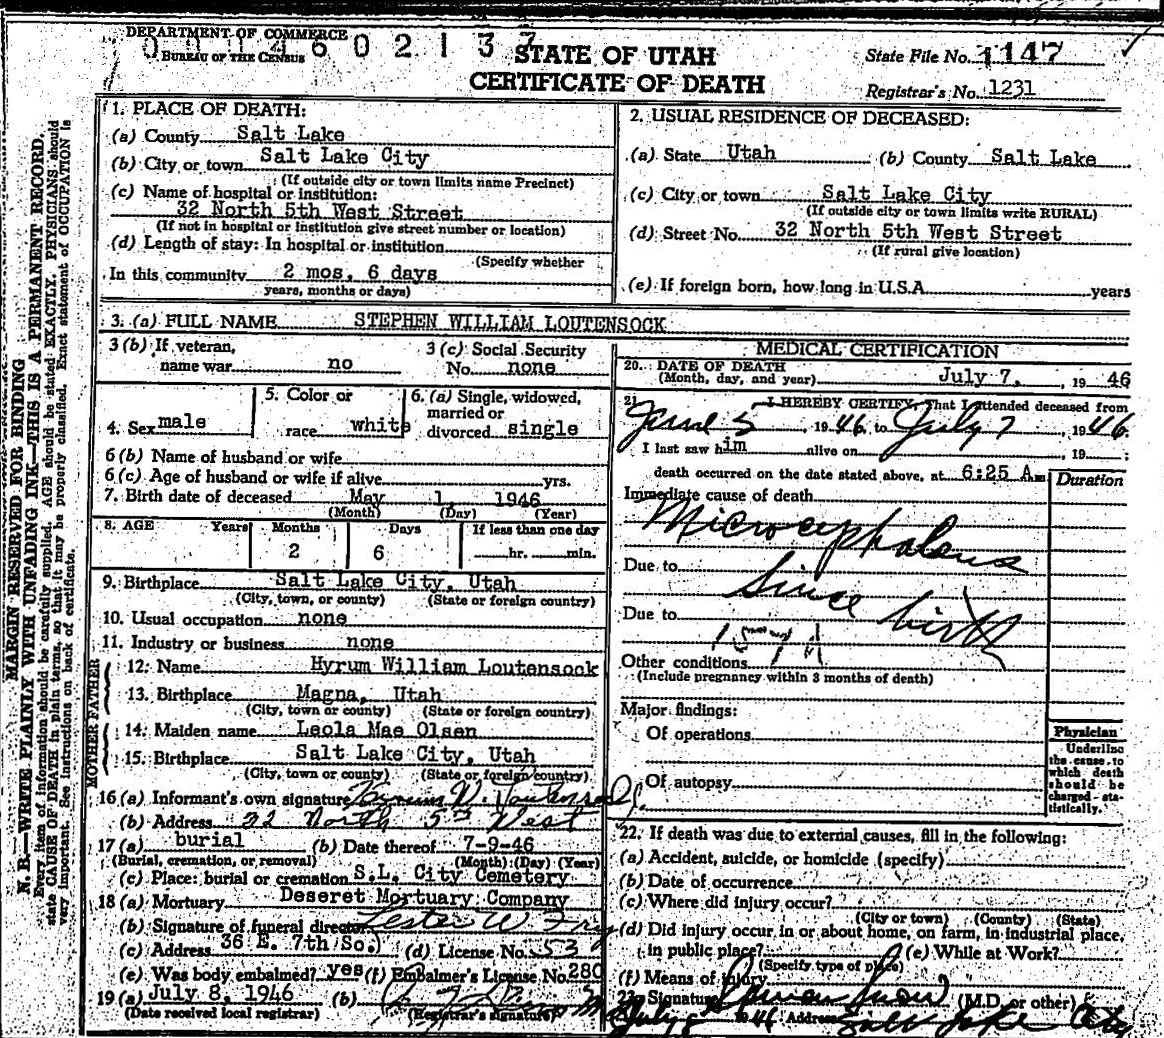 DEPARTMENT OF COMMERCE
BUREAU OF THE CENSUS
0 0 1 4 6 0 2 1 3 7
STATE OF UTAH
CERTIFICATE OF DEATH
State File No. 1147
Registrar's No. 1231
MARGIN RESERVED FOR BINDING
N. B.—WRITE PLAINLY WITH UNFADING INK—THIS IS A PERMANENT RECORD.
Every item of information should be carefully supplied. AGE should be stated EXACTLY. PHYSICIANS should
state CAUSE OF DEATH in plain terms, so that it may be properly classified. Exact statement of OCCUPATION is
very important. See instructions on back of certificate.
1. PLACE OF DEATH:
(a) County Salt Lake
(b) City or town Salt Lake City
(If outside city or town limits name Precinct)
(c) Name of hospital or institution:
32 North 5th West Street
(If not in hospital or institution give street number or location)
(d) Length of stay: In hospital or institution
(Specify whether
In this community 2 mos. 6 days
years, months or days)
2. USUAL RESIDENCE OF DECEASED:
(a) State Utah (b) County Salt Lake
(c) City or town Salt Lake City
(If outside city or town limits write RURAL)
(d) Street No. 32 North 5th West Street
(If rural give location)
(e) If foreign born, how long in U.S.A. years
3. (a) FULL NAME STEPHEN WILLIAM LOUTENSOCK
3 (b) If veteran, name war no
3 (c) Social Security No. none
4. Sex male
5. Color or race white
6. (a) Single, widowed, married or divorced single
6 (b) Name of husband or wife
6 (c) Age of husband or wife if alive yrs.
7. Birth date of deceased May 1 1946
(Month) (Day) (Year)
8. AGE Years Months Days If less than one day
2 6 hr. min.
9. Birthplace Salt Lake City, Utah
(City, town, or county) (State or foreign country)
10. Usual occupation none
11. Industry or business none
FATHER
12. Name Hyrum William Loutensock
13. Birthplace Magna, Utah
(City, town or county) (State or foreign country)
MOTHER
14. Maiden name Leola Mae Olsen
15. Birthplace Salt Lake City, Utah
(City, town or county) (State or foreign country)
16 (a) Informant's own signature Hyrum W. Loutensock Jr.
(b) Address 32 North 5th West
17 (a) burial (b) Date thereof 7-9-46
(Burial, cremation, or removal) (Month) (Day) (Year)
(c) Place: burial or cremation S.L. City Cemetery
18 (a) Mortuary Deseret Mortuary Company
(b) Signature of funeral director Lester W Fry
(c) Address 36 E. 7th So. (d) License No. 53
(e) Was body embalmed? yes (f) Embalmer's License No. 280
19 (a) July 8, 1946 (b)
(Date received local registrar) (Registrar's signature)
MEDICAL CERTIFICATION
20. DATE OF DEATH
(Month, day, and year) July 7, , 19 46
21. I HEREBY CERTIFY, That I attended deceased from
June 5 , 1946, to July 7 , 1946.
I last saw him alive on , 19 ;
death occurred on the date stated above, at 6:25 A m
Duration
Immediate cause of death
Microcephalens
Due to since birth
Due to
Other conditions
(Include pregnancy within 3 months of death)
Major findings:
Of operations
Of autopsy
Physician
Underline
the cause to
which death
should be
charged sta-
tistically.
22. If death was due to external causes, fill in the following:
(a) Accident, suicide, or homicide (specify)
(b) Date of occurrence
(c) Where did injury occur?
(City or town) (County) (State)
(d) Did injury occur in or about home, on farm, in industrial place,
in public place? (e) While at Work?
(Specify type of place)
(f) Means of injury
23. Signature (M.D. or other)
July 8 1946 Address Salt Lake City